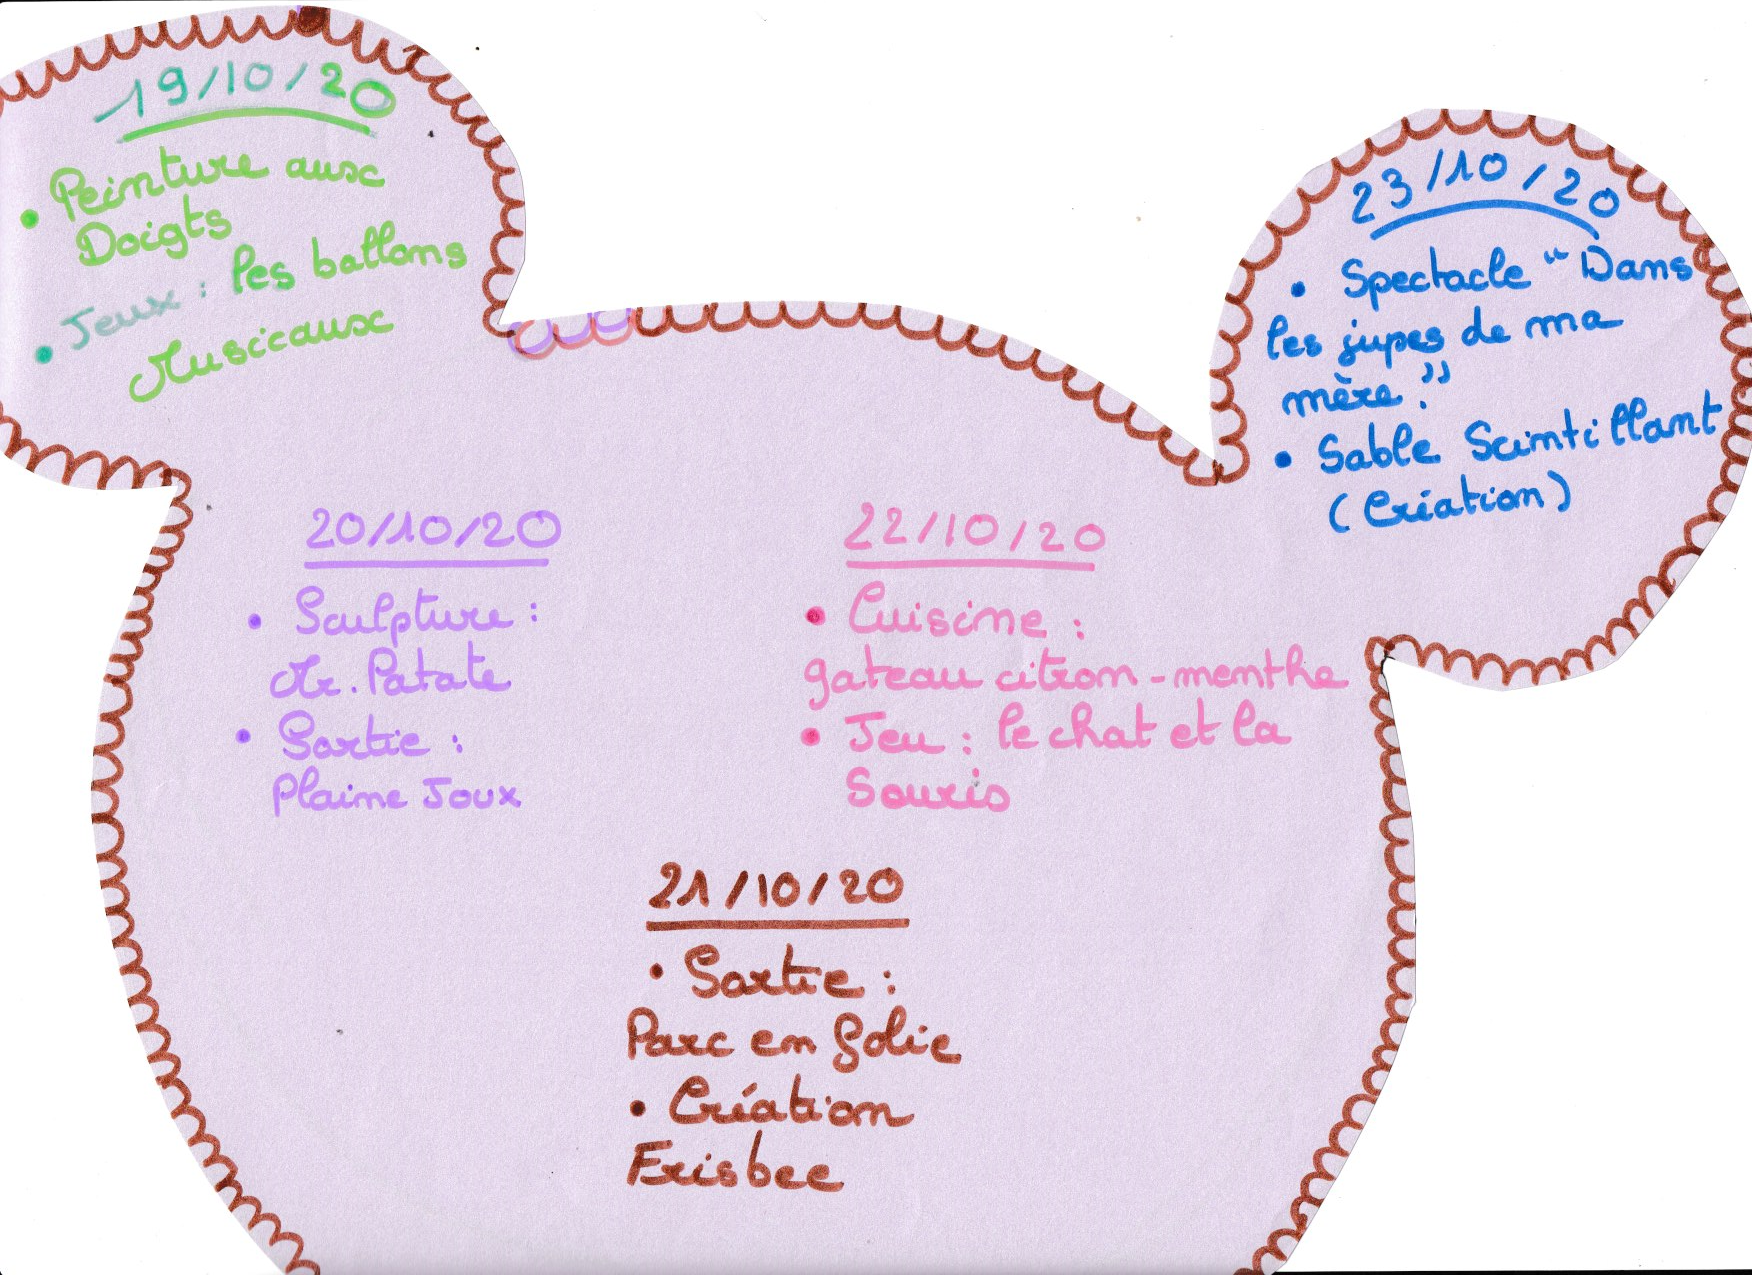 19/10/20
• Peinture aux
Doigts
• Jeux : les ballons
Musicaux
20/10/20
• Sculpture :
Mr. Patate
• Sortie :
Plaine Joux
21/10/20
• Sortie :
Parc en folie
• Création
Frisbee
22/10/20
• Cuisine :
gateau citron-menthe
• Jeu : le chat et la
Souris
23/10/20
• Spectacle "Dans
les jupes de ma
mère."
• Sable Scintillant
(Création)